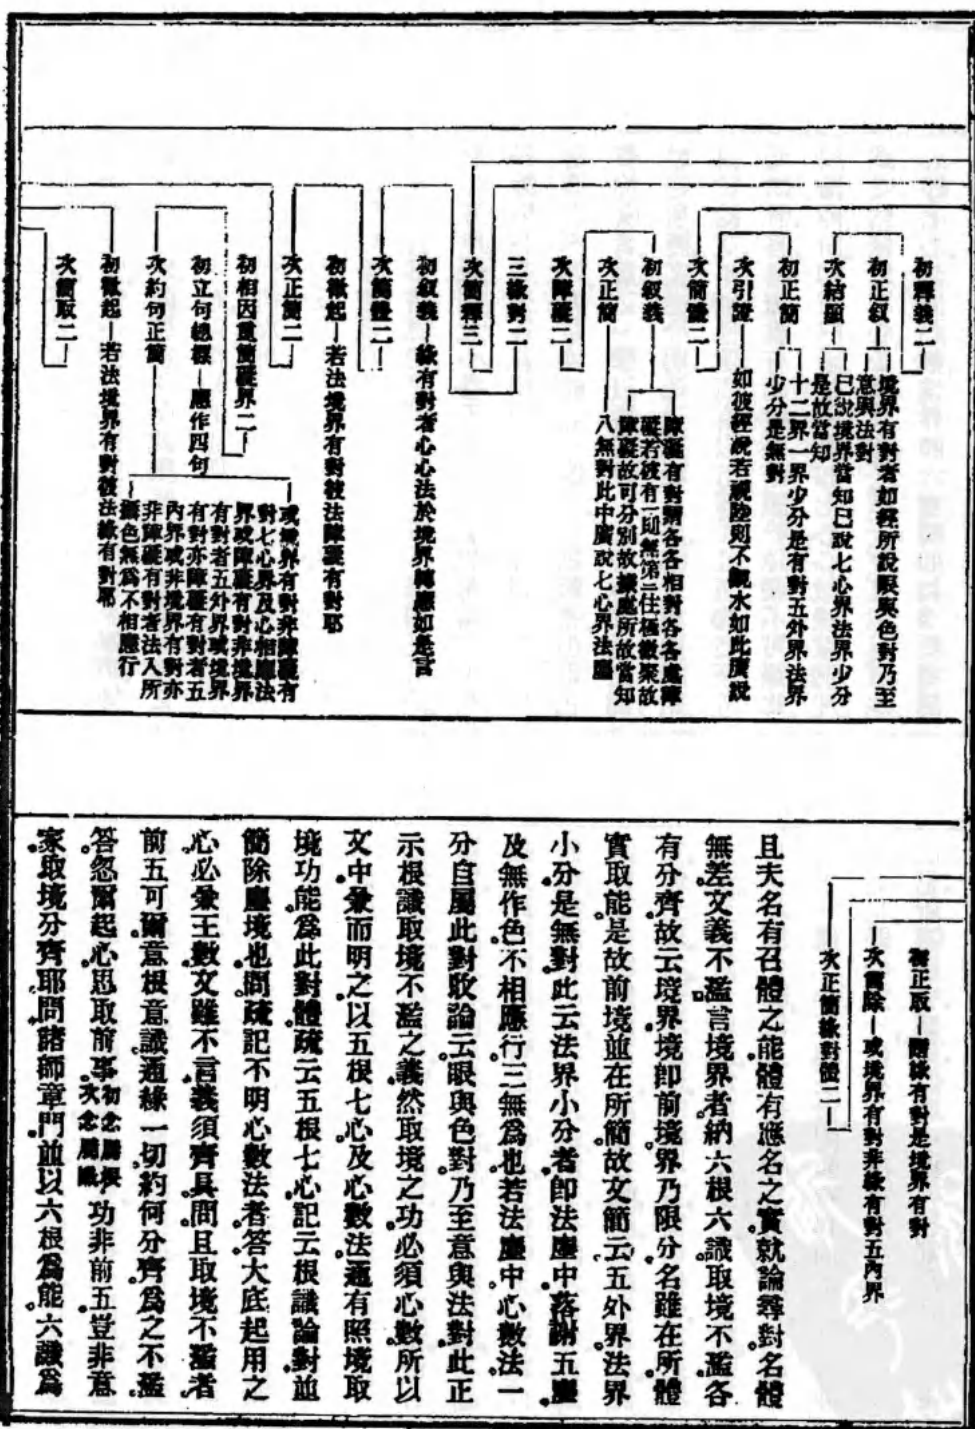 初釋義二
初正叙
境界有對者如經所說眼與色對乃至
意與法對
次結顯
已說境界當知已說七心界法界少分
是故當知
初正簡
十二界一界少分是有對五外界法界
少分是無對
次引證
如彼經說若視陸則不觀水如此廣說
次簡體二
初叙義
障礙有對謂各各相對各各處障
礙若彼有一卽無第二住極微聚故
障礙故可分別故據處所故當知
次正簡
八無對此中廣說七心界法塵
次障礙二
次簡釋三
三緣對二
初叙義
緣有對者心心法於境界轉應如是言
次簡體二
初徵起
若法境界有對彼法障礙有對耶
次正簡二
初相因重簡礙界二
初立句總標
應作四句
次約句正簡
或境界有對非障礙有
對七心界及心相應法
界或障礙有對非境界
有對者五外界或境界
有對亦障礙有對者五
內界或非境界有對亦
非障礙有對者法入所
攝色無爲不相應行
初徵起
若法境界有對彼法緣有對耶
次簡取二
初正取
謂緣有對是境界有對
次簡除
或境界有對非緣有對五內界
次正簡緣對體二
且夫名有召體之能體有應名之實就論尋對名體
無差文義不濫言境界者納六根六識取境不濫各
有分齊故云境界境卽前境界乃限分名雖在所體
實取能是故前境並在所簡故文簡云五外界法界
小分是無對此云法界小分者卽法塵中落謝五塵
及無作色不相應行三無爲也若法塵中心數法一
分自屬此對故論云眼與色對乃至意與法對此正
示根識取境不濫之義然取境之功必須心數所以
文中兼而明之以五根七心及心數法通有照境取
境功能爲此對體疏云五根七心記云根識論對並
簡除塵境也問疏記不明心數法者答大底起用之
心必兼王數文雖不言義須齊具問且取境不濫者
前五可爾意根意識通緣一切約何分齊爲之不濫
答忽爾起心思取前事初念屬根次念屬識功非前五豈非意
家取境分齊耶問諸師章門並以六根爲能六識爲